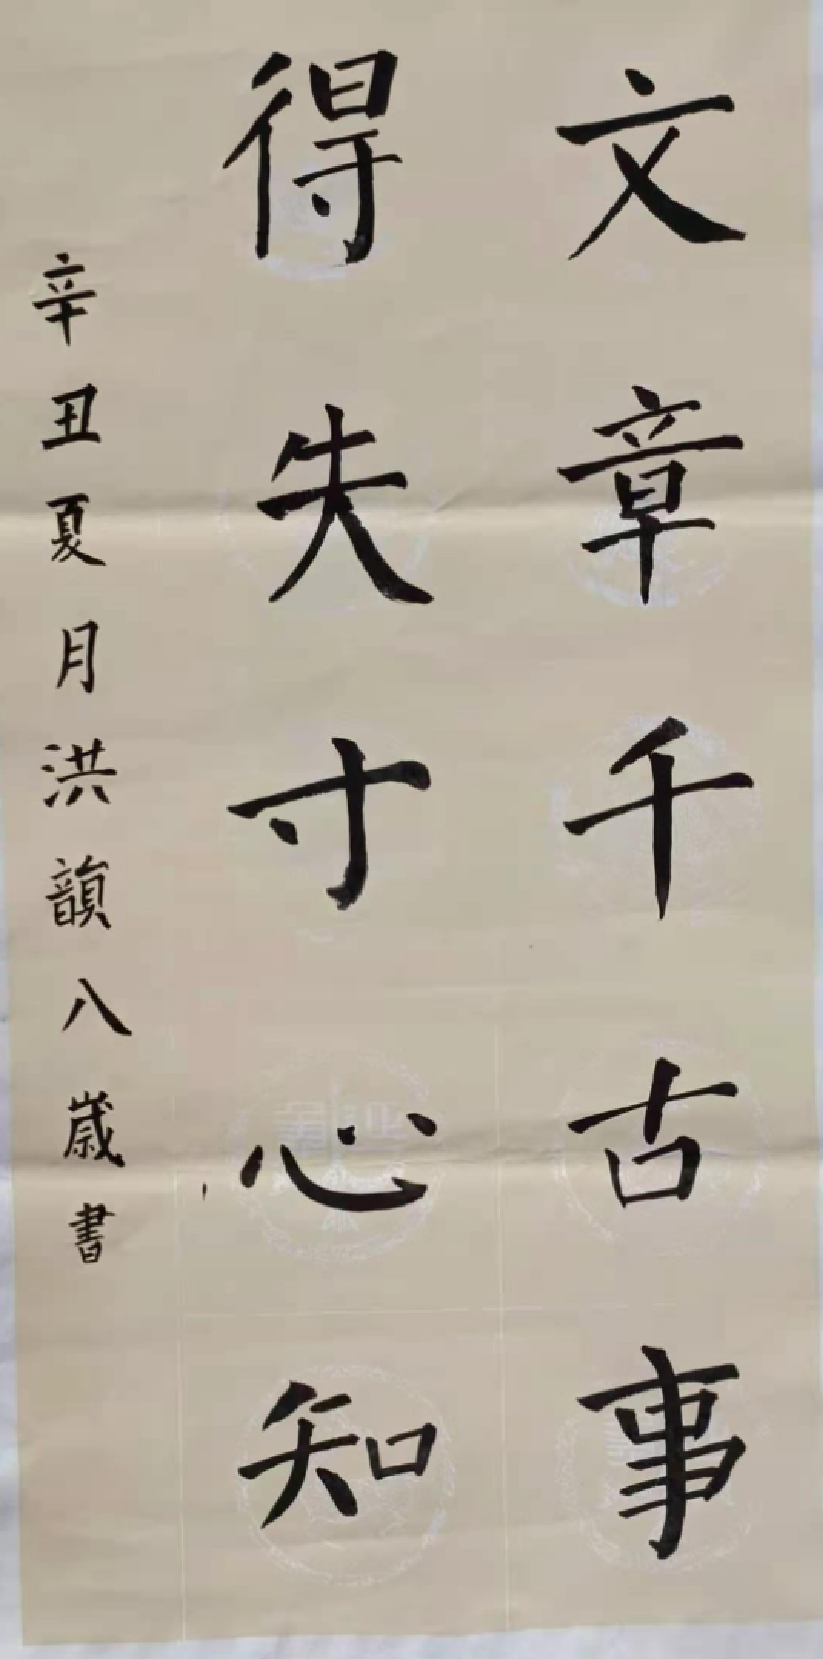 文章千古事
得失寸心知
辛丑夏月洪韻八歲書